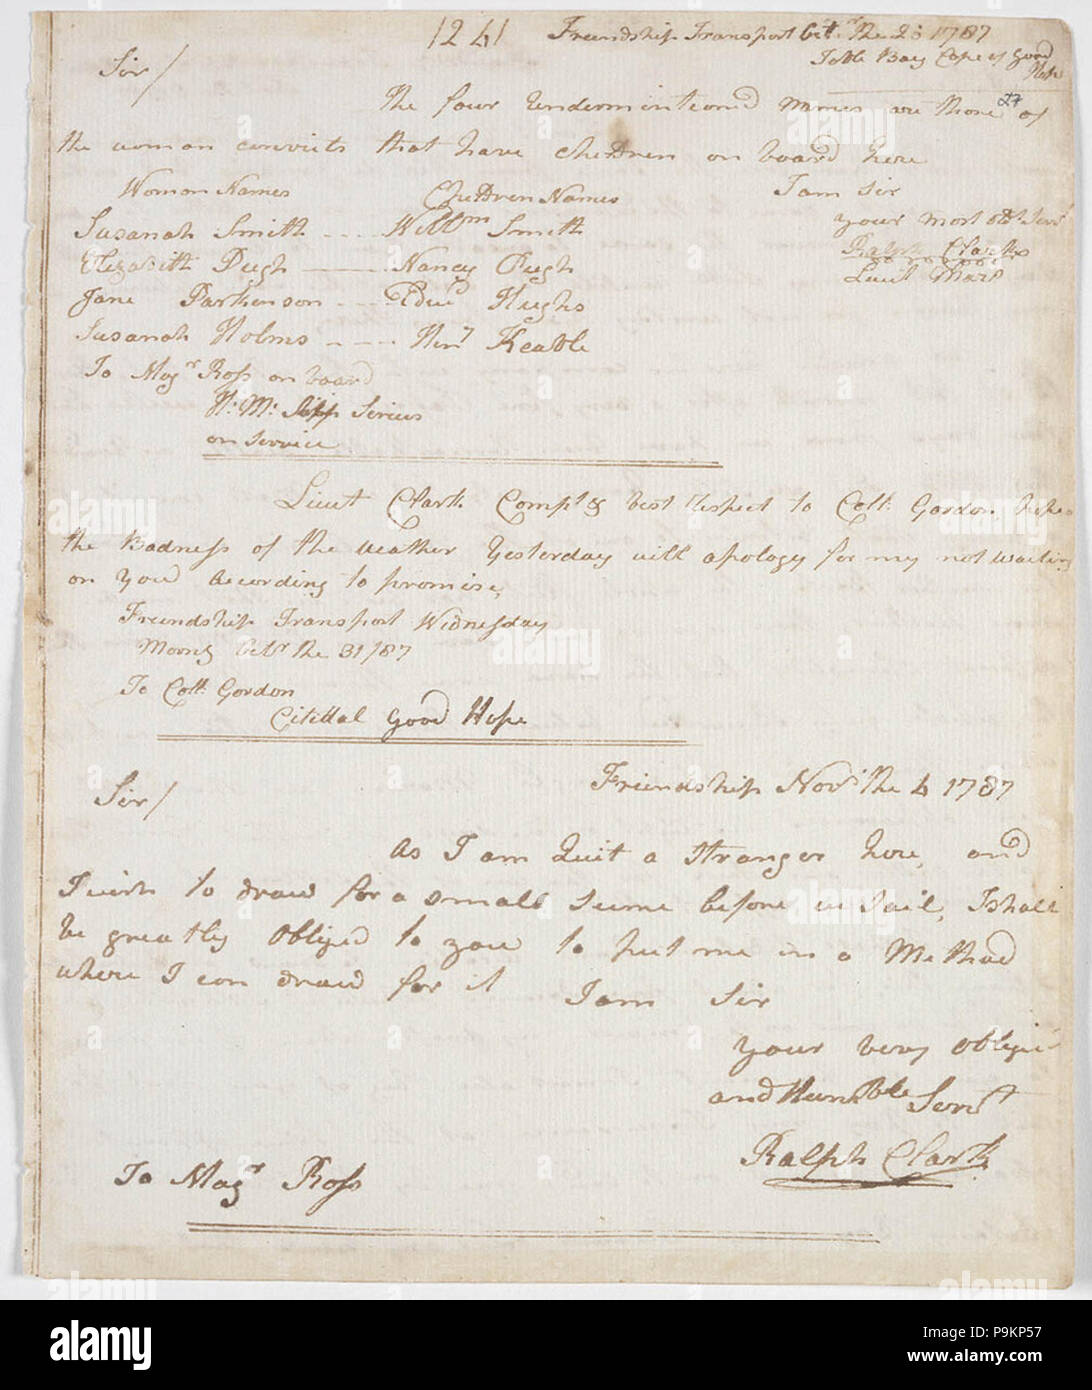 1241 Friendship Transport Octr. the 23 1787
Table Bay Cape of Good
Hope
Sir/
27
the four undermintioned names are those of
the woman convicts that have children on board here
Woman Names Children Names I am Sir
Susanah Smith - - - - Willm Smith your most obt. Servt
Elizabeth Pugh ——— Nancy Pugh Ralph Clark
Jane Parkinson - - - Edwd Hughs Lieut Mars
Susanah Holms - - - - Heny Keable
To Majr. Ross on board
H: M: Ship Sirius
on Service
Lieut Clark Compts & best respect to Coll. Gordon, hopes
the Badness of the weather Yesterday will apology for my not waiting
on you According to promise,
Friendship Transport Wednesday
Morng Octr the 31/87
To Coll. Gordon
Citidal Good Hope
Friendship Novr. the 4 1787
Sir/
As I am Quit a stranger here, and
I wish to draw for a small sume before we Sail, I shall
be greatly Obliged to you to put me in a Method
where I can draw for it I am Sir
your very oblige
and Humble Servt
Ralph Clark
To Majr Ross
alamy
Image ID: P9KP57
www.alamy.com